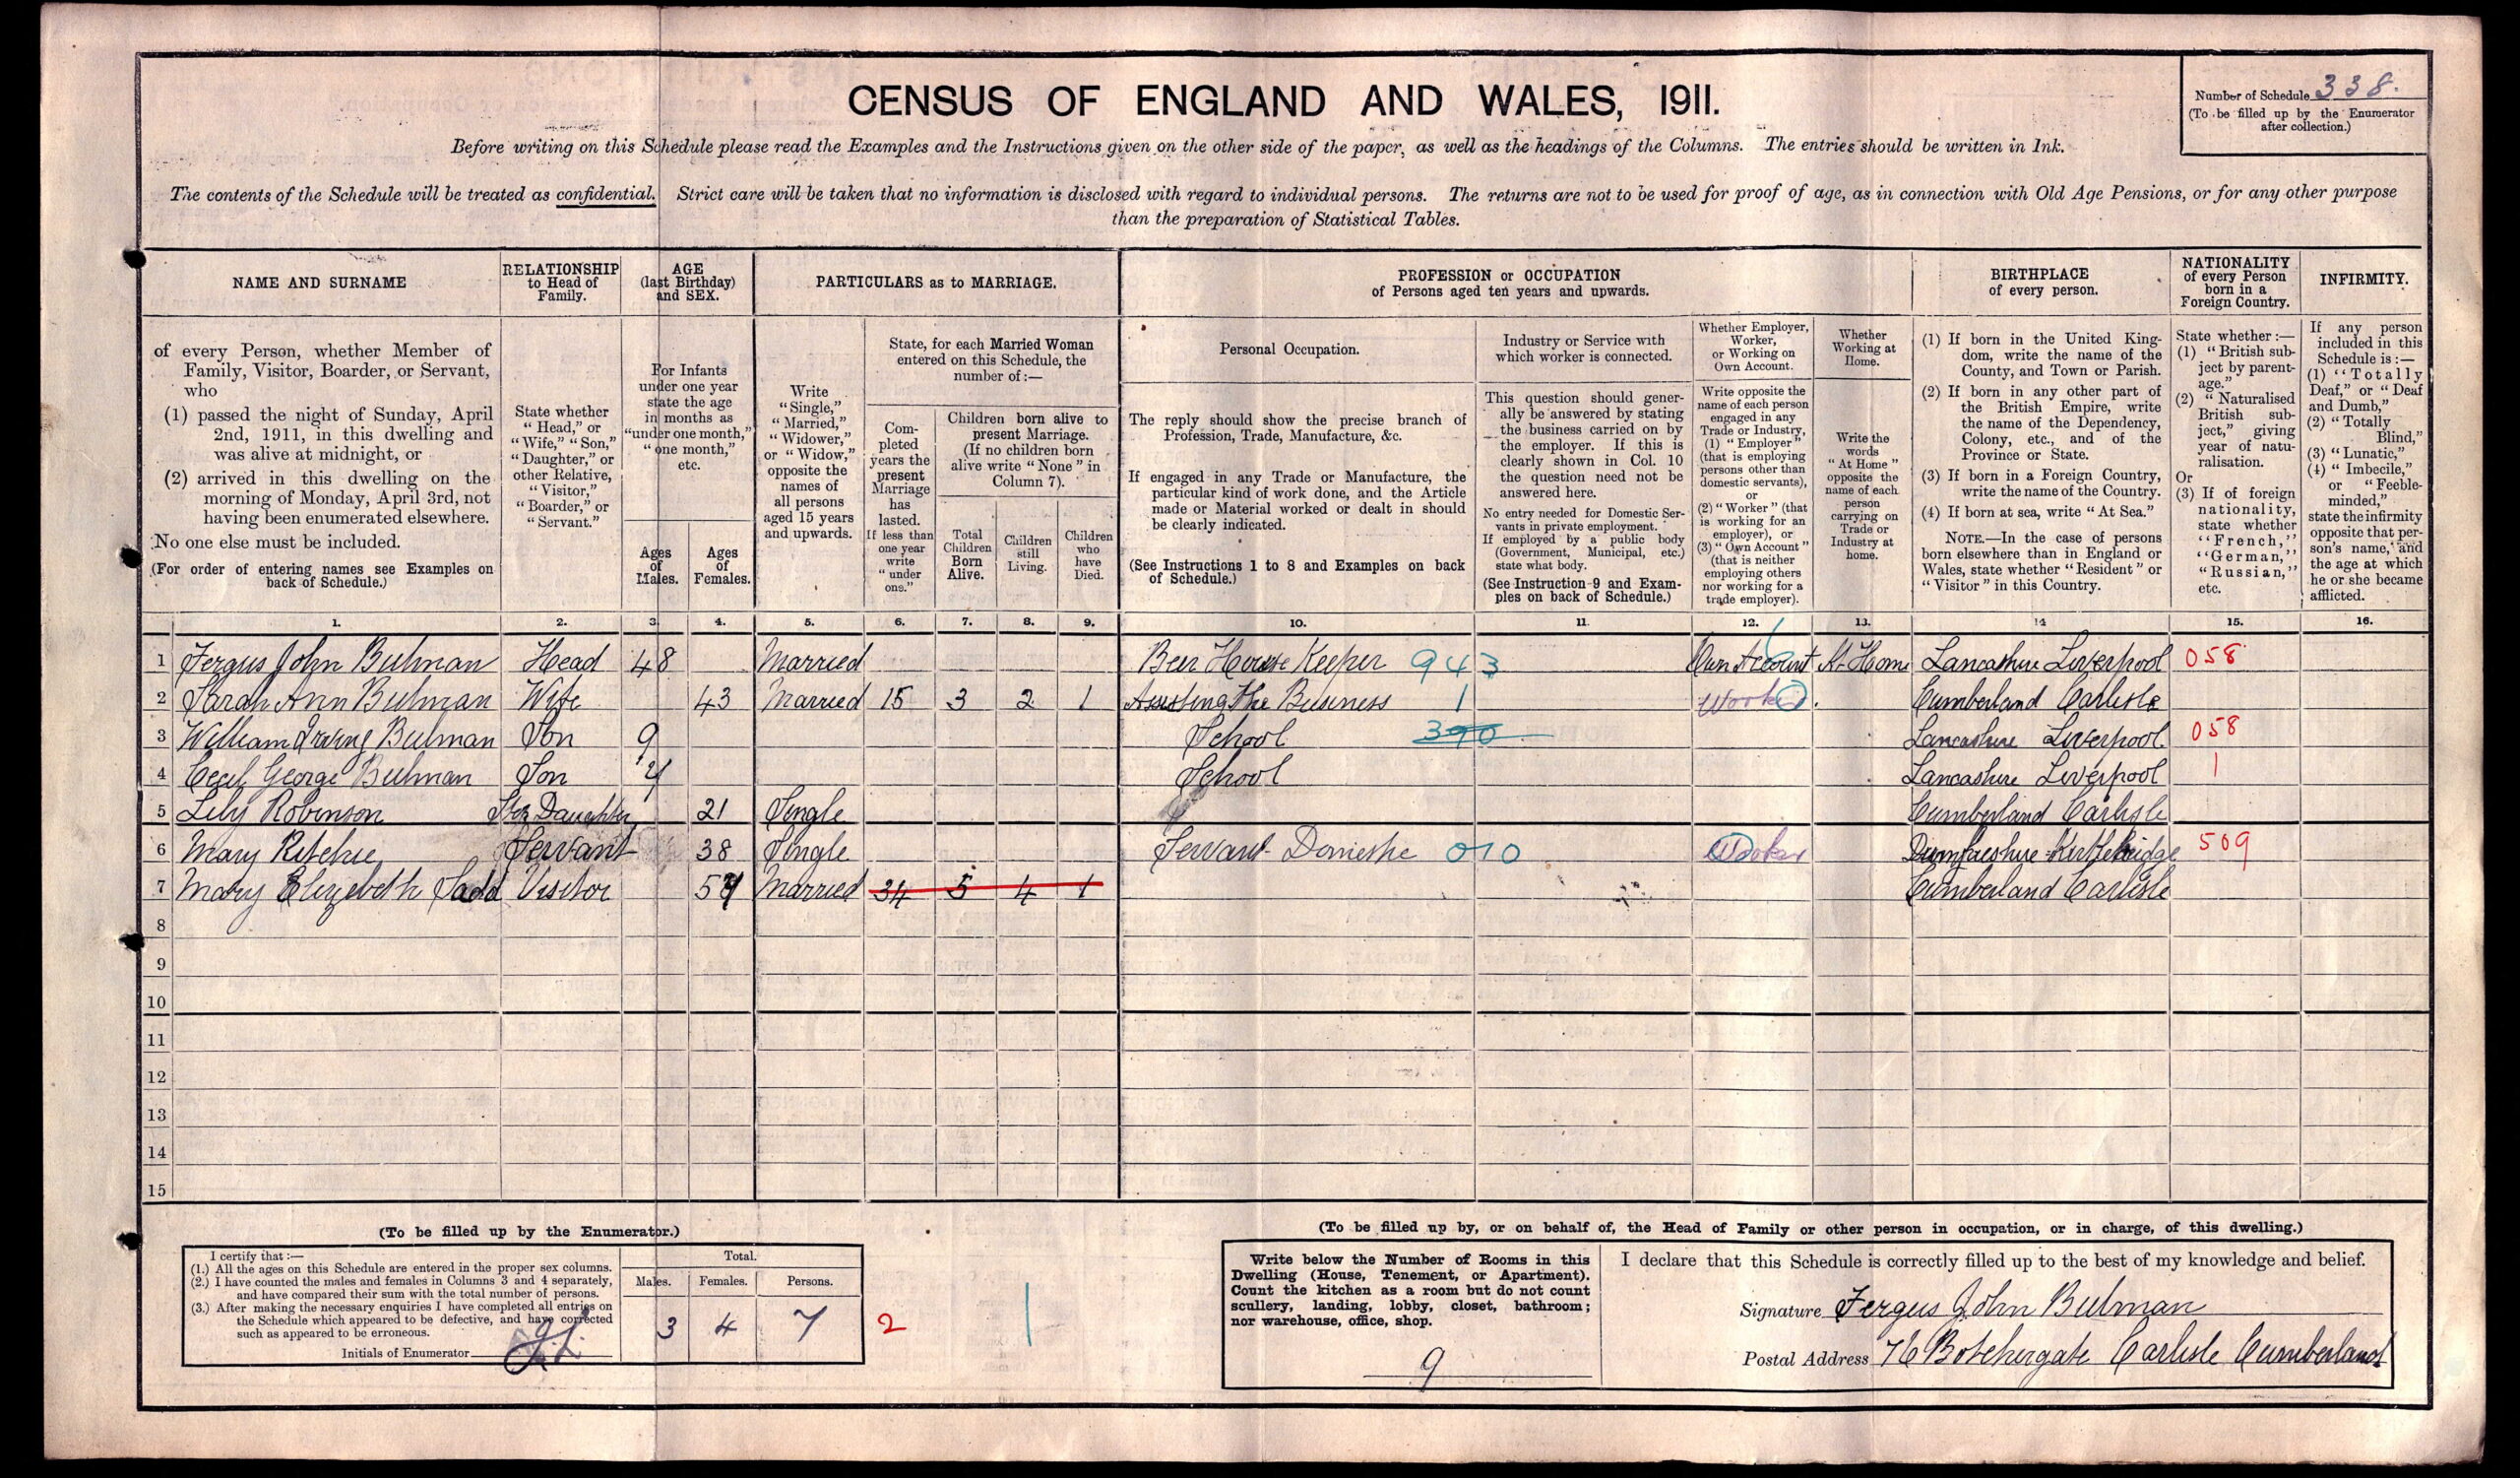 CENSUS OF ENGLAND AND WALES, 1911.
Number of Schedule 338.
(To be filled up by the Enumerator
after collection.)
Before writing on this Schedule please read the Examples and the Instructions given on the other side of the paper, as well as the headings of the Columns. The entries should be written in Ink.
The contents of the Schedule will be treated as confidential. Strict care will be taken that no information is disclosed with regard to individual persons. The returns are not to be used for proof of age, as in connection with Old Age Pensions, or for any other purpose
than the preparation of Statistical Tables.
NAME AND SURNAME
RELATIONSHIP
to Head of
Family.
AGE
(last Birthday)
and SEX.
PARTICULARS as to MARRIAGE.
PROFESSION or OCCUPATION
of Persons aged ten years and upwards.
BIRTHPLACE
of every person.
NATIONALITY
of every Person
born in a
Foreign Country.
INFIRMITY.
of every Person, whether Member of
Family, Visitor, Boarder, or Servant,
who
(1) passed the night of Sunday, April
2nd, 1911, in this dwelling and
was alive at midnight, or
(2) arrived in this dwelling on the
morning of Monday, April 3rd, not
having been enumerated elsewhere.
No one else must be included.
(For order of entering names see Examples on
back of Schedule.)
State whether
"Head," or
"Wife," "Son,"
"Daughter," or
other Relative,
"Visitor,"
"Boarder," or
"Servant."
For Infants
under one year
state the age
in months as
"under one month,"
"one month,"
etc.
Ages
of
Males.
Ages
of
Females.
Write
"Single,"
"Married,"
"Widower,"
or "Widow,"
opposite the
names of
all persons
aged 15 years
and upwards.
State, for each Married Woman
entered on this Schedule, the
number of:—
Com-
pleted
years the
present
Marriage
has
lasted.
If less than
one year
write
"under
one."
Children born alive to
present Marriage.
(If no children born
alive write "None" in
Column 7).
Total
Children
Born
Alive.
Children
still
Living.
Children
who
have
Died.
Personal Occupation.
The reply should show the precise branch of
Profession, Trade, Manufacture, &c.
If engaged in any Trade or Manufacture, the
particular kind of work done, and the Article
made or Material worked or dealt in should
be clearly indicated.
(See Instructions 1 to 8 and Examples on back
of Schedule.)
Industry or Service with
which worker is connected.
This question should gener-
ally be answered by stating
the business carried on by
the employer. If this is
clearly shown in Col. 10
the question need not be
answered here.
No entry needed for Domestic Ser-
vants in private employment.
If employed by a public body
(Government, Municipal, etc.)
state what body.
(See Instruction 9 and Exam-
ples on back of Schedule.)
Whether Employer,
Worker,
or Working on
Own Account.
Write opposite the
name of each person
engaged in any
Trade or Industry,
(1) "Employer"
(that is employing
persons other than
domestic servants),
or
(2) "Worker" (that
is working for an
employer), or
(3) "Own Account"
(that is neither
employing others
nor working for a
trade employer).
Whether
Working at
Home.
Write the
words
"At Home"
opposite the
name of each
person
carrying on
Trade or
Industry at
home.
(1) If born in the United King-
dom, write the name of the
County, and Town or Parish.
(2) If born in any other part of
the British Empire, write
the name of the Dependency,
Colony, etc., and of the
Province or State.
(3) If born in a Foreign Country,
write the name of the Country.
(4) If born at sea, write "At Sea."
NOTE.—In the case of persons
born elsewhere than in England or
Wales, state whether "Resident" or
"Visitor" in this Country.
State whether:—
(1) "British sub-
ject by parent-
age."
(2) "Naturalised
British sub-
ject," giving
year of natu-
ralisation.
Or
(3) If of foreign
nationality,
state whether
"French,"
"German,"
"Russian,"
etc.
If any person
included in this
Schedule is:—
(1) "Totally
Deaf," or "Deaf
and Dumb,"
(2) "Totally
Blind,"
(3) "Lunatic,"
(4) "Imbecile,"
or "Feeble-
minded,"
state the infirmity
opposite that per-
son's name, and
the age at which
he or she became
afflicted.
1. 2. 3. 4. 5. 6. 7. 8. 9. 10. 11. 12. 13. 14 15. 16.
1 Fergus John Bulman Head 48 Married Beer House Keeper 943 Own Account At Home Lancashire Liverpool 058
2 Sarah Ann Bulman Wife 43 Married 15 3 2 1 Assisting the Business 1 Worker Cumberland Carlisle
3 William Irving Bulman Son 9 School 390 Lancashire Liverpool 058
4 Cecil George Bulman Son School Lancashire Liverpool 1
5 Lily Robinson Step Daughter 21 Single Cumberland Carlisle
6 Mary Ritchie Servant 38 Single Servant Domestic 010 Worker Dumfriesshire Kirtlebridge 509
7 Mary Elizabeth Sadd Visitor Married 34 5 4 1 Cumberland Carlisle
8
9
10
11
12
13
14
15
(To be filled up by the Enumerator.)
I certify that:—
(1.) All the ages on this Schedule are entered in the proper sex columns.
(2.) I have counted the males and females in Columns 3 and 4 separately,
and have compared their sum with the total number of persons.
(3.) After making the necessary enquiries I have completed all entries on
the Schedule which appeared to be defective, and have corrected
such as appeared to be erroneous.
Initials of Enumerator
Total.
Males. Females. Persons.
3 4 7
2
1
(To be filled up by, or on behalf of, the Head of Family or other person in occupation, or in charge, of this dwelling.)
Write below the Number of Rooms in this
Dwelling (House, Tenement, or Apartment).
Count the kitchen as a room but do not count
scullery, landing, lobby, closet, bathroom;
nor warehouse, office, shop.
9
I declare that this Schedule is correctly filled up to the best of my knowledge and belief.
Signature Fergus John Bulman
Postal Address 76 Botchergate Carlisle Cumberland